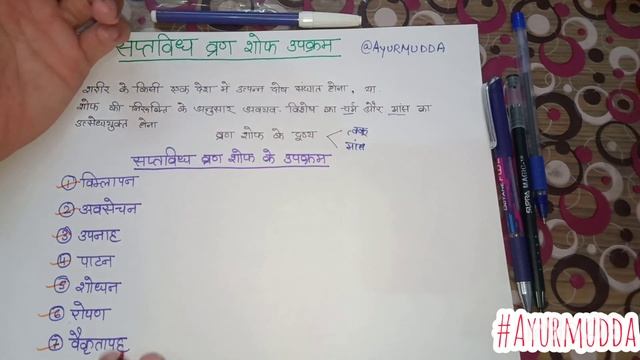 सप्तविध व्रण शोफ उपक्रम @AYURMUDDA
शरीर के किसी एक देश में उत्पन्न दोष संघात होना, या
शोफ की निरुक्ति के अनुसार अवयव विशेष का चर्म और मांस का
उत्सेधयुक्त होना
व्रण शोफ के दूष्य < त्वक
मांस
सप्तविध व्रण शोफ के उपक्रम
① विम्लापन
② अवसेचन
③ उपनाह
④ पाटन
⑤ शोधन
⑥ रोपण
⑦ वैकृतापह
#AYURMUDDA